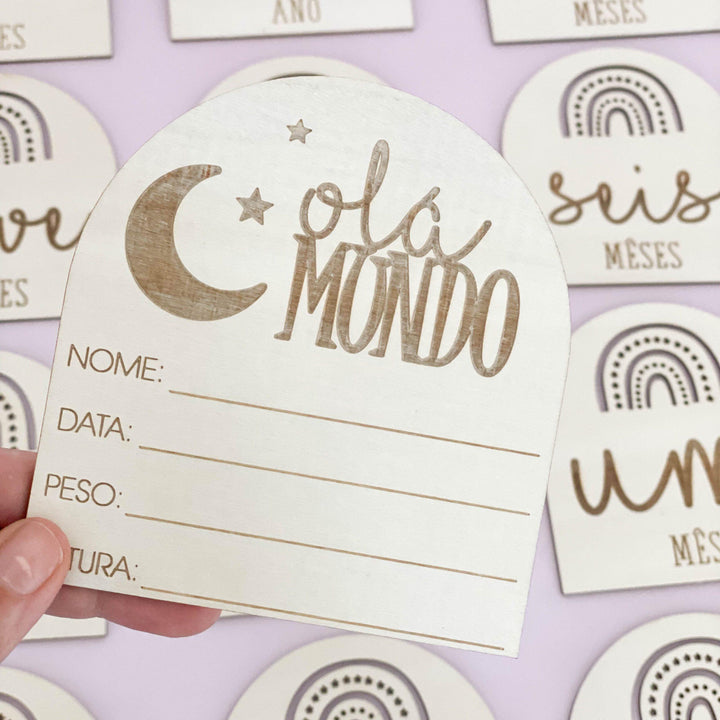 ES
ANO
MÊSES
olá
MUNDO
NOME:
DATA:
PESO:
TURA:
ve
ES
seis
MÊSES
um
MÊS